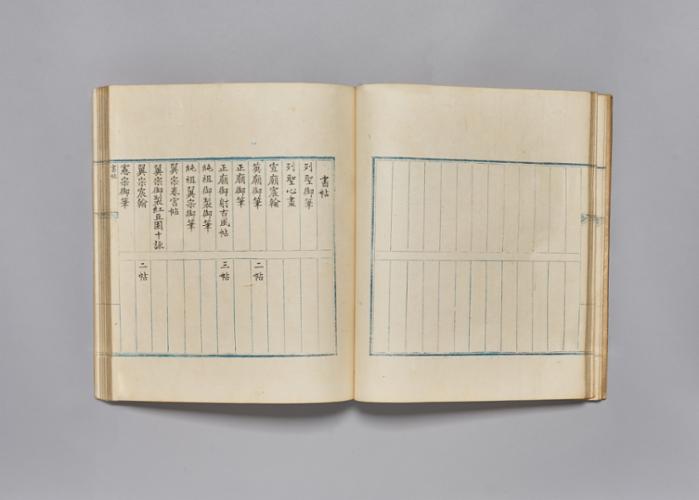 書帖
列聖御筆
列聖心畫
宣廟宸翰
英廟御筆 二帖
正廟御筆
正廟御射古風帖 三帖
純祖御製御筆
純祖翼宗御筆
翼宗春宮帖
翼宗御製紅豆園十詠
翼宗宸翰 二帖
憲宗御筆
書帖